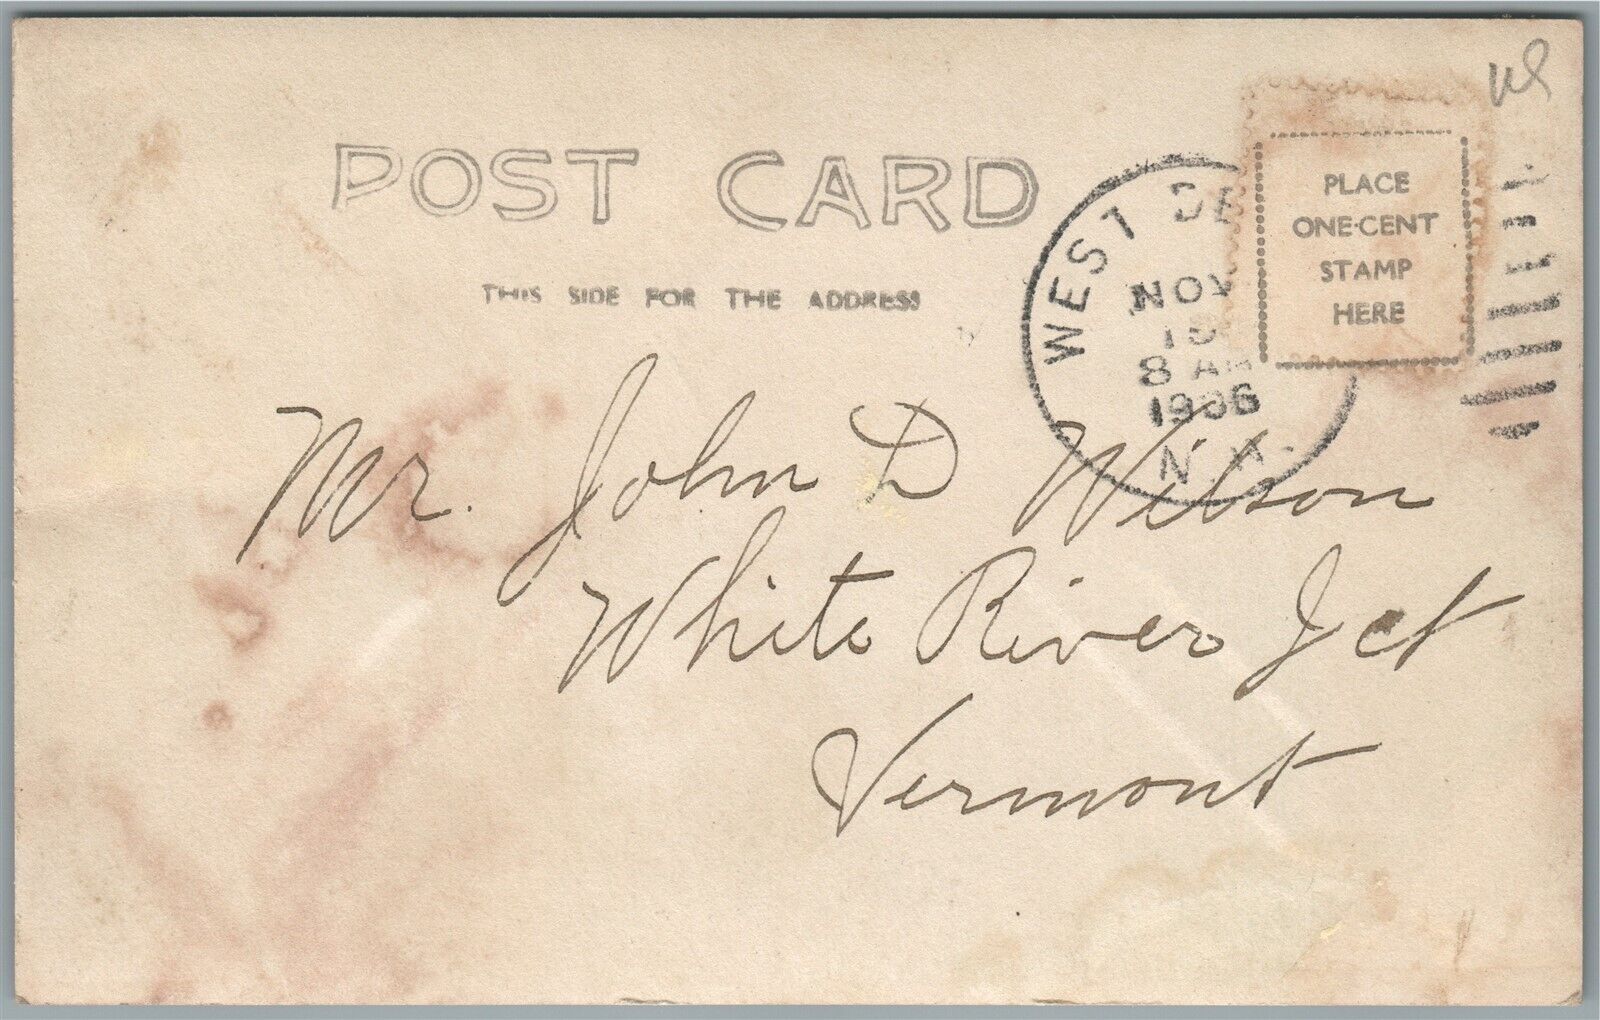 POST CARD
THIS SIDE FOR THE ADDRESS
PLACE
ONE-CENT
STAMP
HERE
WEST DE
NOV
8 AM
1906
N.H.
Mr. John D Wilson
White River Jct
Vermont